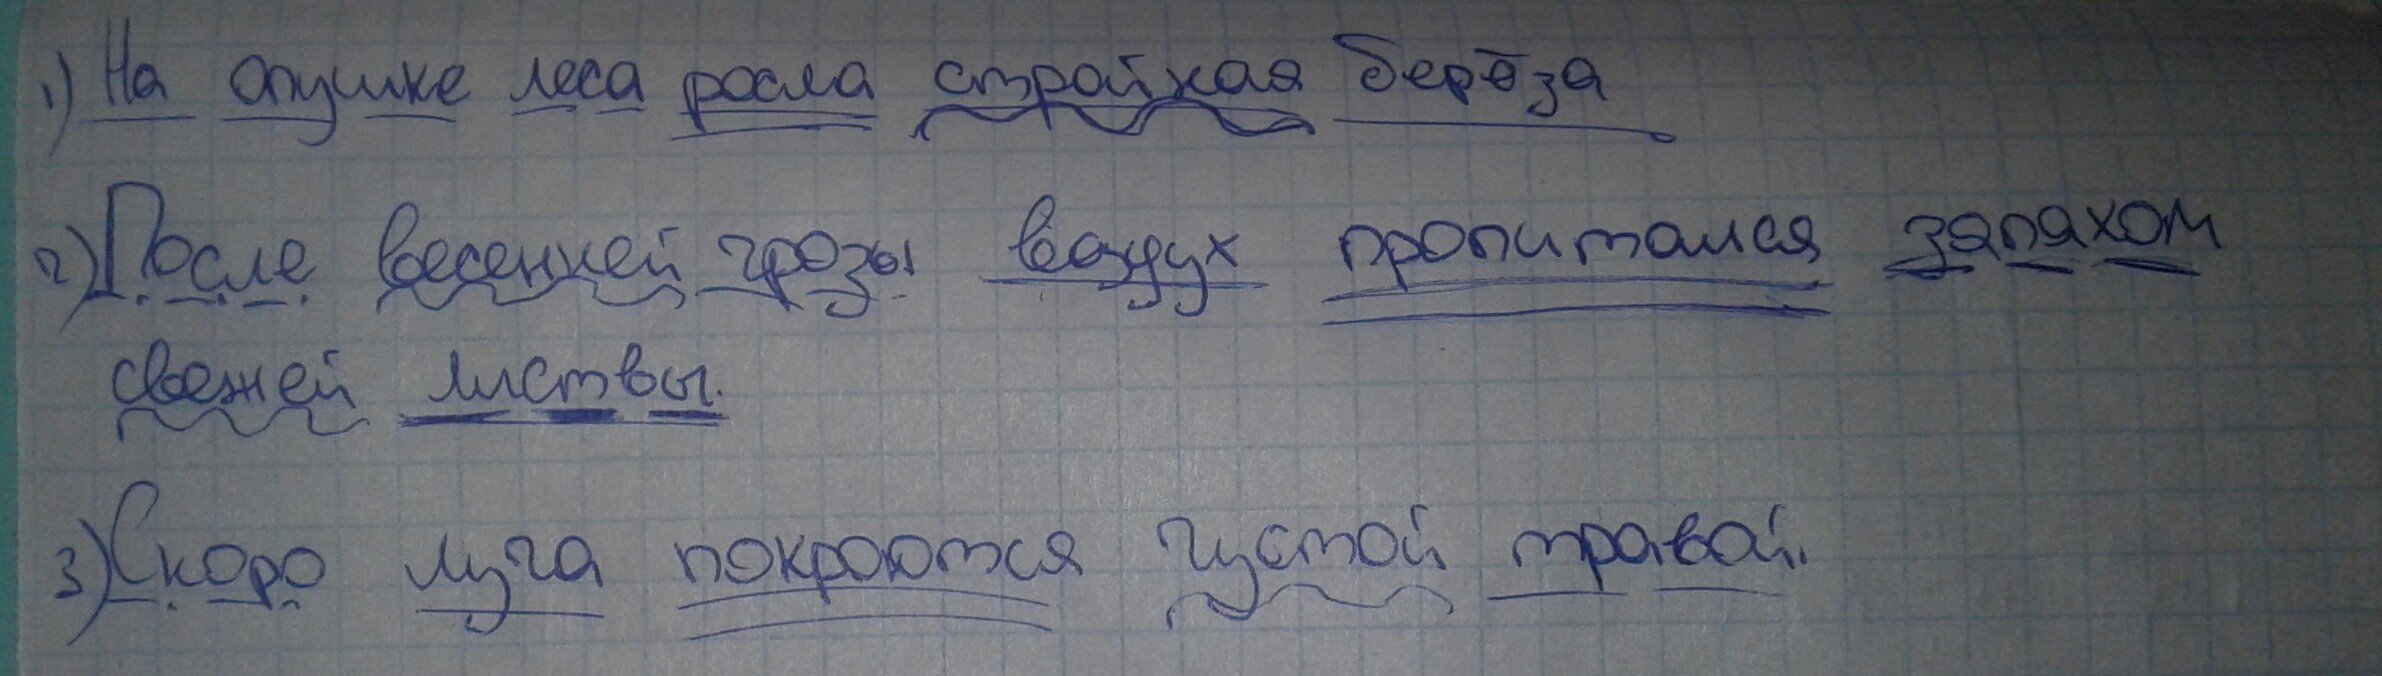 1) На опушке леса росла стройная берёза
2) После весенней грозы воздух пропитался запахом
свежей листвы.
3) Скоро луга покроются густой травой.